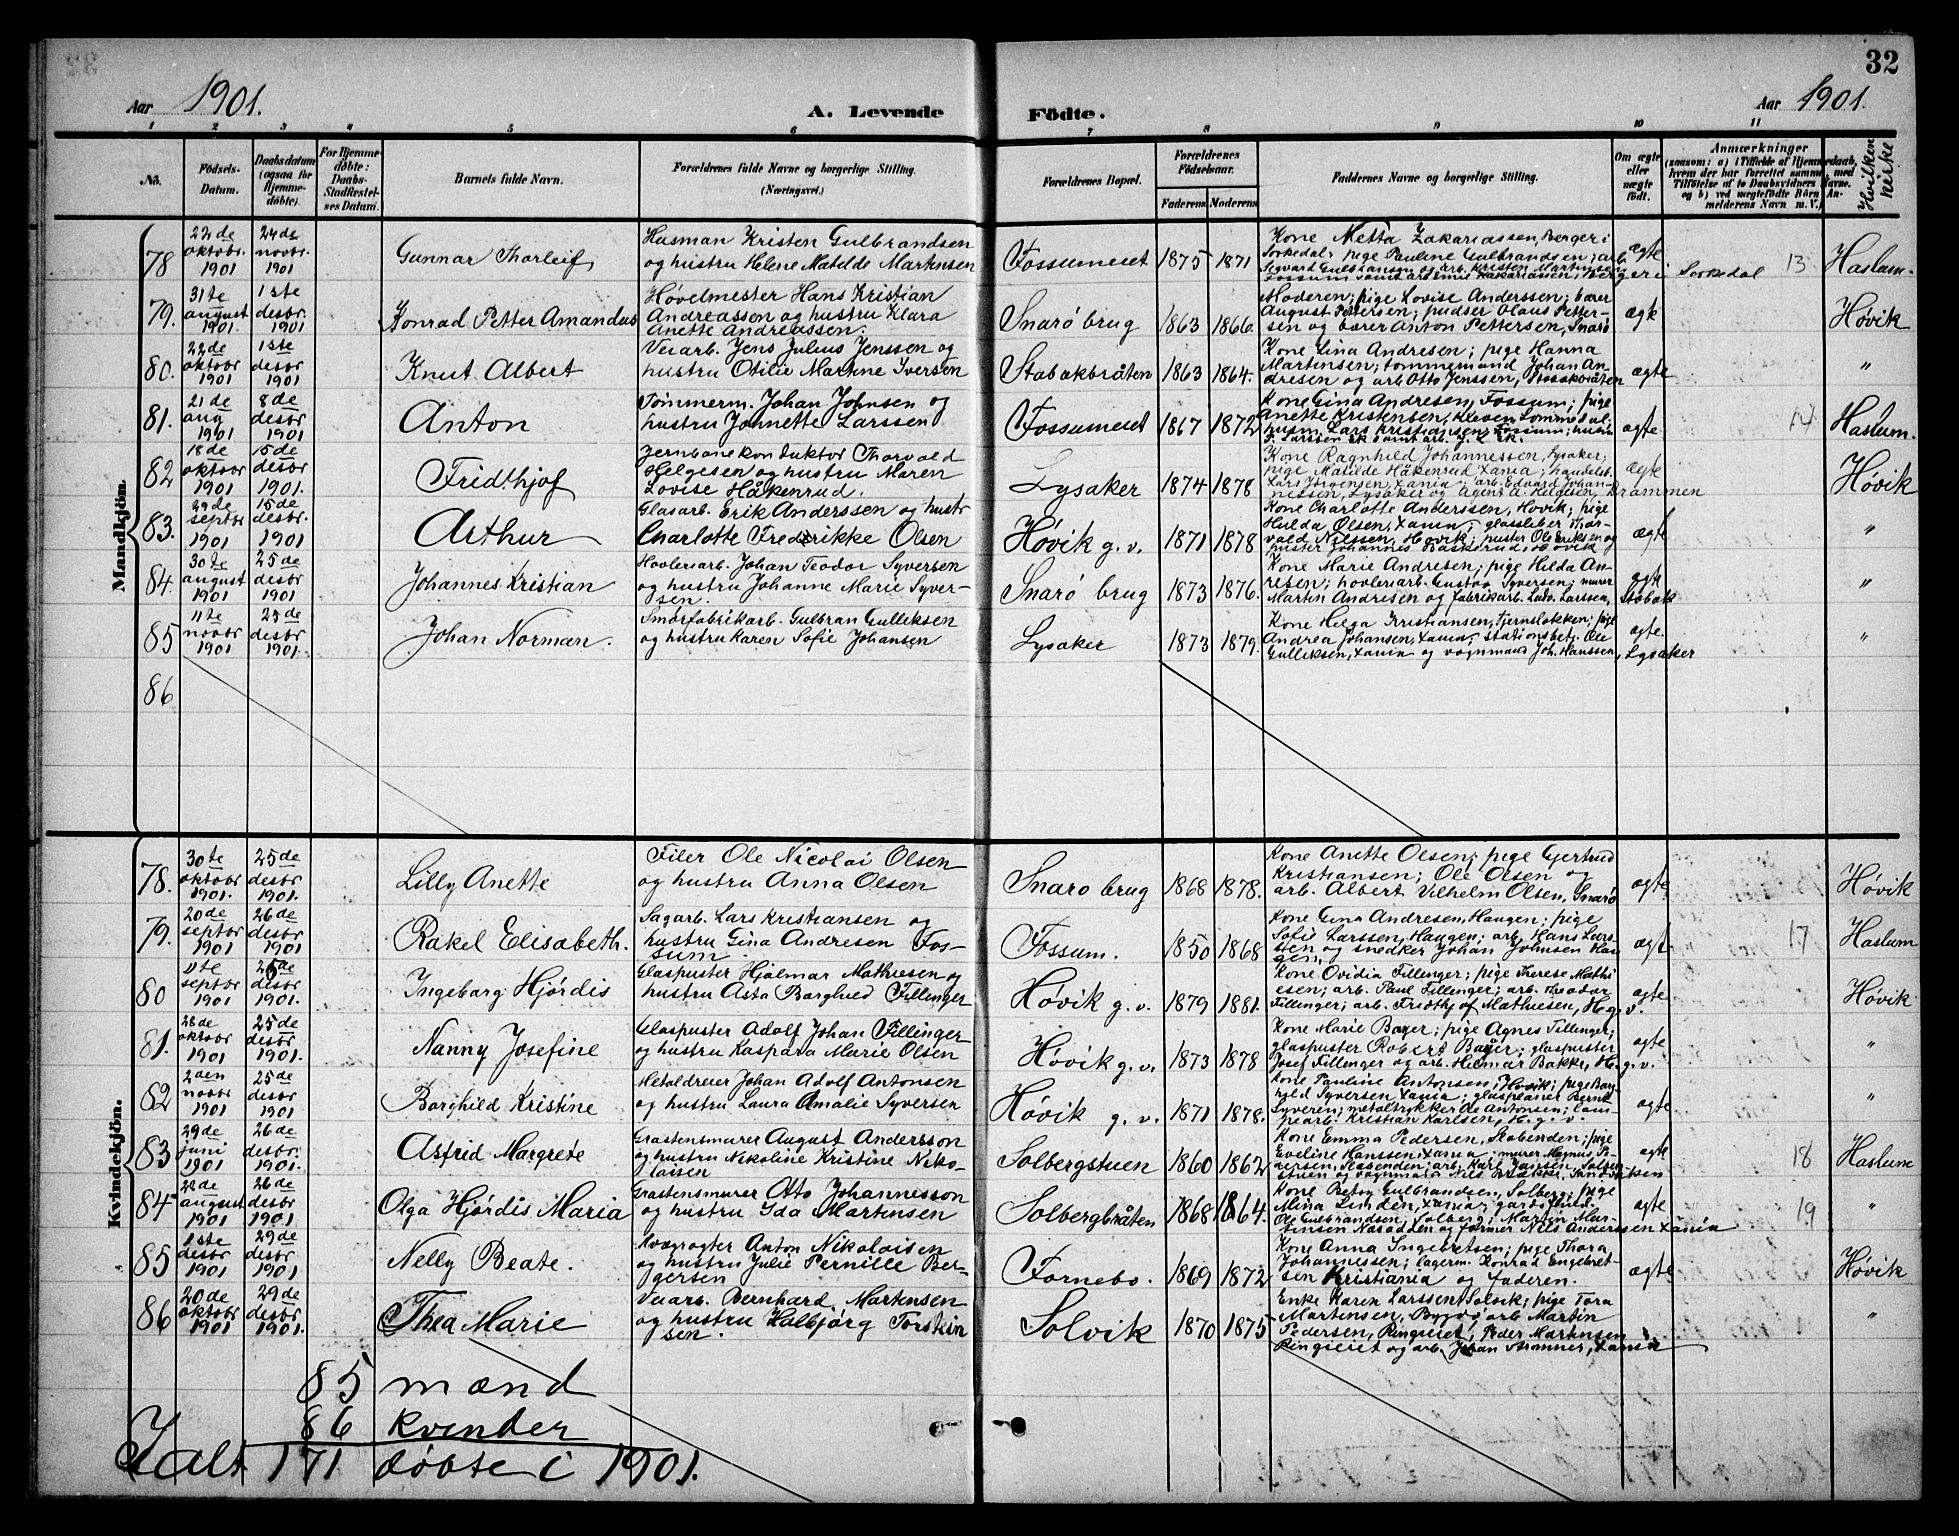 32
Aar 1901.
A. Levende Födte.
Aar 1901.
1 2 3 4 5 6 7 8 9 10 11
No.
Födsels-Datum.
Daabsdatum (ogsaa for Hjemme-döbte).
For Hjemme-döbte: Daabs-Stadfæstel-ses Datum.
Barnets fulde Navn.
Forældrenes fulde Navne og borgerlige Stilling. (Næringsvei.)
Forældrenes Bopæl.
Forældrenes Födselsaar.
Faderens Moderens
Faddernes Navne og borgerlige Stilling.
Om ægte eller uægte födt.
Anmærkninger
(saasom: a) i Tilfælde af Hjemmedaab, hvem der har forrettet samme, med Tilföielse af to Daabsvidners Navne. og b) ved uægtefödte Börn An-melderens Navn m. V.)
Hvilken kirke
Mandkjön.
78 22de oktobr. 1901 24de novbr. 1901 Gunnar Thorleif
Husman Kristen Gulbrandsen
og hustru Helene Matilde Martinsen
Fossumeiet 1875 1871
Kone Netta Zakariassen, Berger i
Sørkedal; pige Pauline Gulbrandsen; arb.
ægte Sørkedal 13 Haslum.
79. 31te august 1901. 1ste desbr. 1901 Konrad Petter Amandus
Høvelmester Hans Kristian
Andreassen og hustru Klara
Anette Andreassen.
Snarö brug 1863 1866.
Moderen; pige Lovise Anderssen; bærer
August Pettersen; pudser Olaus Petter-
sen og bærer Anton Pettersen, Snarö
ægte Høvik
80. 22de oktobr 1901 1ste desbr 1901 Knut Albert
Veiarb. Jens Julius Jenssen og
hustru Otilie Martine Iversen
Stabækbråten 1863 1864.
Kone Lina Andresen; pige Hanna
Martinsen; tømmermand Johan An-
dresen og arb Otto Jenssen, Stabækbråten
ægte "
81. 21de aug 1901 8de desbr 1901 Anton
Tömmerm. Johan Johnsen og
hustru Johnette Larssen
Fossumeiet 1867 1872
Kone Gina Andresen, Fossum; pige
Anette Kristensen, Kleven Lommedal;
husm. Lars Kristiansen, Fossum; husm
ægte 14 Haslum.
82 18de oktobr 1901 15de desbr 1901. Fridthjof
Jernbanekonduktör Thorvald
Helgesen og hustru Maren
Lovise Håkenrud.
Lysaker 1874 1878
Kone Ragnhild Johannessen, Lysaker;
pige Matilde Håkenrud Xania; handelsb.
Lars Jörgensen, Xania; arb. Edvard Johan-
nessen, Lysaker og Agent A. Helgesen, Drammen
ægte Høvik
83. 29de septbr 1901 15de desbr. 1901 Arthur
Glasarb. Erik Anderssen og hustr
Charlotte Fredrikke Olsen
Høvik g. v. 1871 1878
Kone Charlotte Anderssen, Høvik; pige
Hulda Olsen, Xania; glassliber Thor-
vald Nilssen, Høvik; puster Ole Eriksen og
puster Johannes Baskerud, Høvik
ægte "
84. 30te august 1901 25de desbr 1901 Johannes Kristian
Høvleriarb. Johan Teodor Syversen
og hustru Johanne Marie Syver-
sen.
Snarö brug 1873 1876.
Kone Marie Andresen; pige Hilda An-
resen; høvleriarb. Gustav Syversen; murer
Martin Andresen og fabrikarb. Ludv. Larssen, Stabæk
ægte "
85 11te novbr 1901 25de desbr 1901. Johan Norman.
Smörfabrikarb. Gulbran Gulliksen
og hustru Karen Sofie Johansen
Lysaker 1873 1879.
Kone Helga Kristiansen, Tjernsløkken; pige
Andrea Johansen, Xania; stationsbetj. Ole
Gulliksen, Xania og vognmand Joh. Hanssen, Lysaker
ægte. "
86
Kvindekjön.
78. 30te oktobr 1901. 25de desbr 1901. Lilly Anette
Filer Ole Nicolai Olsen
og hustru Anna Olsen
Snarö brug 1868 1878.
Kone Anette Olsen; pige Gjertrud
Kristiansen; Ole Olsen og
arb. Albert Vilhelm Olsen, Snarö
ægte Høvik
79. 20de septbr 1901 26de desbr 1901 Rakel Elisabeth.
Sagarb. Lars Kristiansen og
hustru Gina Andresen Fos-
sum.
Fossum. 1850 1868
Kone Gina Andresen, Haugen; pige
Sofie Larssen, Haugen; arb. Hans Lars-
sen og snedker Johan Johnsen Hau-
gen.
ægte 17 Haslum
80 11te septbr 1901 25de desbr 1901. Ingeborg Hjördis
Glaspuster Hjalmar Mathiesen og
hustru Asta Borghild Fillinger
Høvik g. v. 1879 1881.
Kone Ovidia Fillinger; pige Therese Mathi
esen; arb. Paul Fillinger; arb. Theodor
Fillinger; arb. Fridthjof Mathiesen, H. g. v.
ægte Høvik
81. 28de oktobr 1901 25de desbr 1901. Nanny Josefine
Glaspuster Adolf Johan Fillinger
og hustru Kaspara Marie Olsen
Høvik g. v. 1873 1878
Kone Marie Bayer; pige Agnes Fillinger;
glaspuster Robert Bayer; glaspuster
Josef Fillinger og arb. Helmar Bakke, H. g. v.
ægte "
82 2den novbr 1901 25de desbr 1901 Borghild Kristine
Metaldreier Johan Adolf Antonsen
og hustru Laura Amalie Syversen
Høvik g. v. 1871 1878.
Kone Pauline Antonsen, Høvik; pige Borg-
hild Syversen Xania; Bernt
Syveren; metaltrykker Ole Antonsen; lam-
pearb. Kristian Karlsen, H. g. v.
ægte "
83 29de juni 1901 26de desbr. 1901. Astrid Margrete
Gråstensmurer August Andersson
og hustru Nikoline Kristine Niko-
laisen
Solbergstuen 1860 1862
Kone Emma Pedersen, Stobenden; pige
Eveline Hanssen, Xania; murer Magnus Pe-
ægte 18 Haslum
84 28de august 1901 26de desbr 1901 Olga Hjördis Maria
Gråstensmurer Otto Johannesson
og hustru Ida Martinsen
Solbergbråten 1868 1864.
Kone Betsy Gulbrandsen, Solberg; pige
Mina Linden, Xania; gårdsfuld.
Ole Gulbrandsen, Solberg; Martin Mar-
tinsen Næsodden og former Nils Anderssen Xania
ægte 19 "
85 1ste desbr 1901 29de desbr 1901 Nelly Beate.
Kvægrøgter Anton Nikolaisen
og hustru Julie Pernille Ber-
gersen
Fornebo. 1869 1872
Kone Anna Ingebretsen; pige Thora
Johannessen; lagerm. Konrad Engebret-
sen Kristiania og faderen.
ægte Høvik
86 20de oktobr 1901 29de desbr 1901. Thea Marie
Veiarb. Bernhard Martinsen
og hustru Halbjørg Torstein
sen.
Solvik 1870 1875
Enke Karen Larssen Solvik; pige Tora
Martinsen, Bygdö; arb Martin
Pedersen, Ringieiet; Peder Martinsen
Ringieiet og arb. Johan Strømner, Xania
"
85 mænd
86 kvinder
Ialt 171 döbte i 1901.